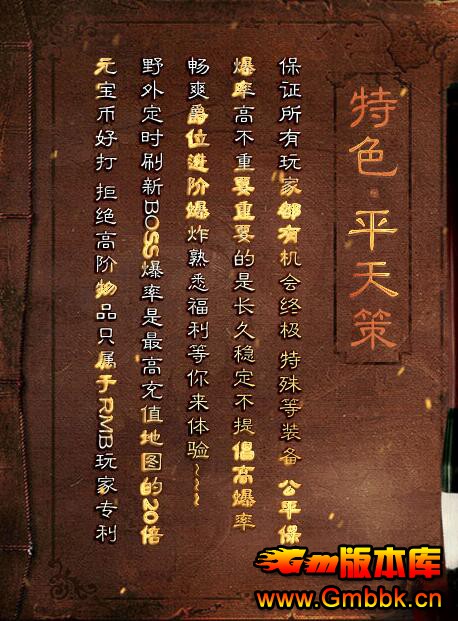 特色·平天策
保证所有玩家都有机会终极 特殊等装备 公平保
爆率高不重要重要的是长久稳定不提倡高爆率
畅爽爵位进阶爆炸熟悉福利等你来体验~~~~
野外定时刷新BOSS爆率是最高充值地图的20倍
元宝币好打 拒绝高阶物品只属于RMB玩家专利
Gm版本库
www.Gmbbk.cn